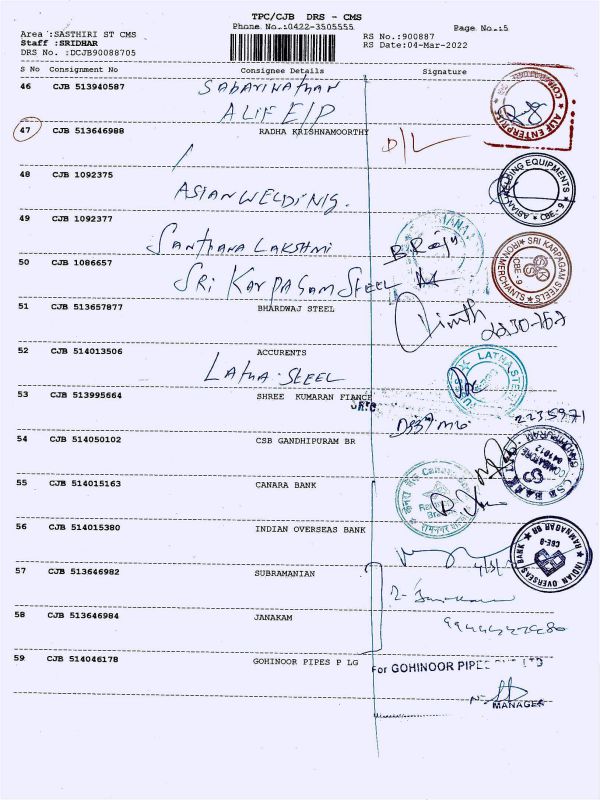 TPC/CJB DRS - CMS
Phone No.:0422-3505555
Page No.:5
Area :SASTHIRI ST CMS
Staff :SRIDHAR
DRS No. :DCJB90088705
RS No.:900887
RS Date:04-Mar-2022
S No Consignment No Consignee Details Signature
46 CJB 513940587 Sabarinathan
ALIF E/P
ALIF ENTERPRISE
47 CJB 513646988 RADHA KRISHNAMOORTHY D/L
48 CJB 1092375
ASIAN WELDING
ASIAN WELDING EQUIPMENTS CBE-
49 CJB 1092377
Santhana Lakshmi B. Raju
50 CJB 1086657 SRI KARPAGAM STEEL
SRI KARPAGAM STEELS IRON MERCHANTS CBE-9
51 CJB 513657877 BHARDWAJ STEEL
52 CJB 514013506 ACCURENTS
LATHA STEEL
LATHA STEEL
53 CJB 513995664 SHREE KUMARAN FIANCE
2235971
54 CJB 514050102 CSB GANDHIPURAM BR
CSB BANK GANDHIPURAM COIMBATORE 641012
55 CJB 514015163 CANARA BANK
Canara
56 CJB 514015380 INDIAN OVERSEAS BANK
INDIAN OVERSEAS BANK RAMNAGAR BR CBE-9
57 CJB 513646982 SUBRAMANIAN
58 CJB 513646984 JANAKAM
59 CJB 514046178 GOHINOOR PIPES P LG
For GOHINOOR PIPES PVT LTD
MANAGER